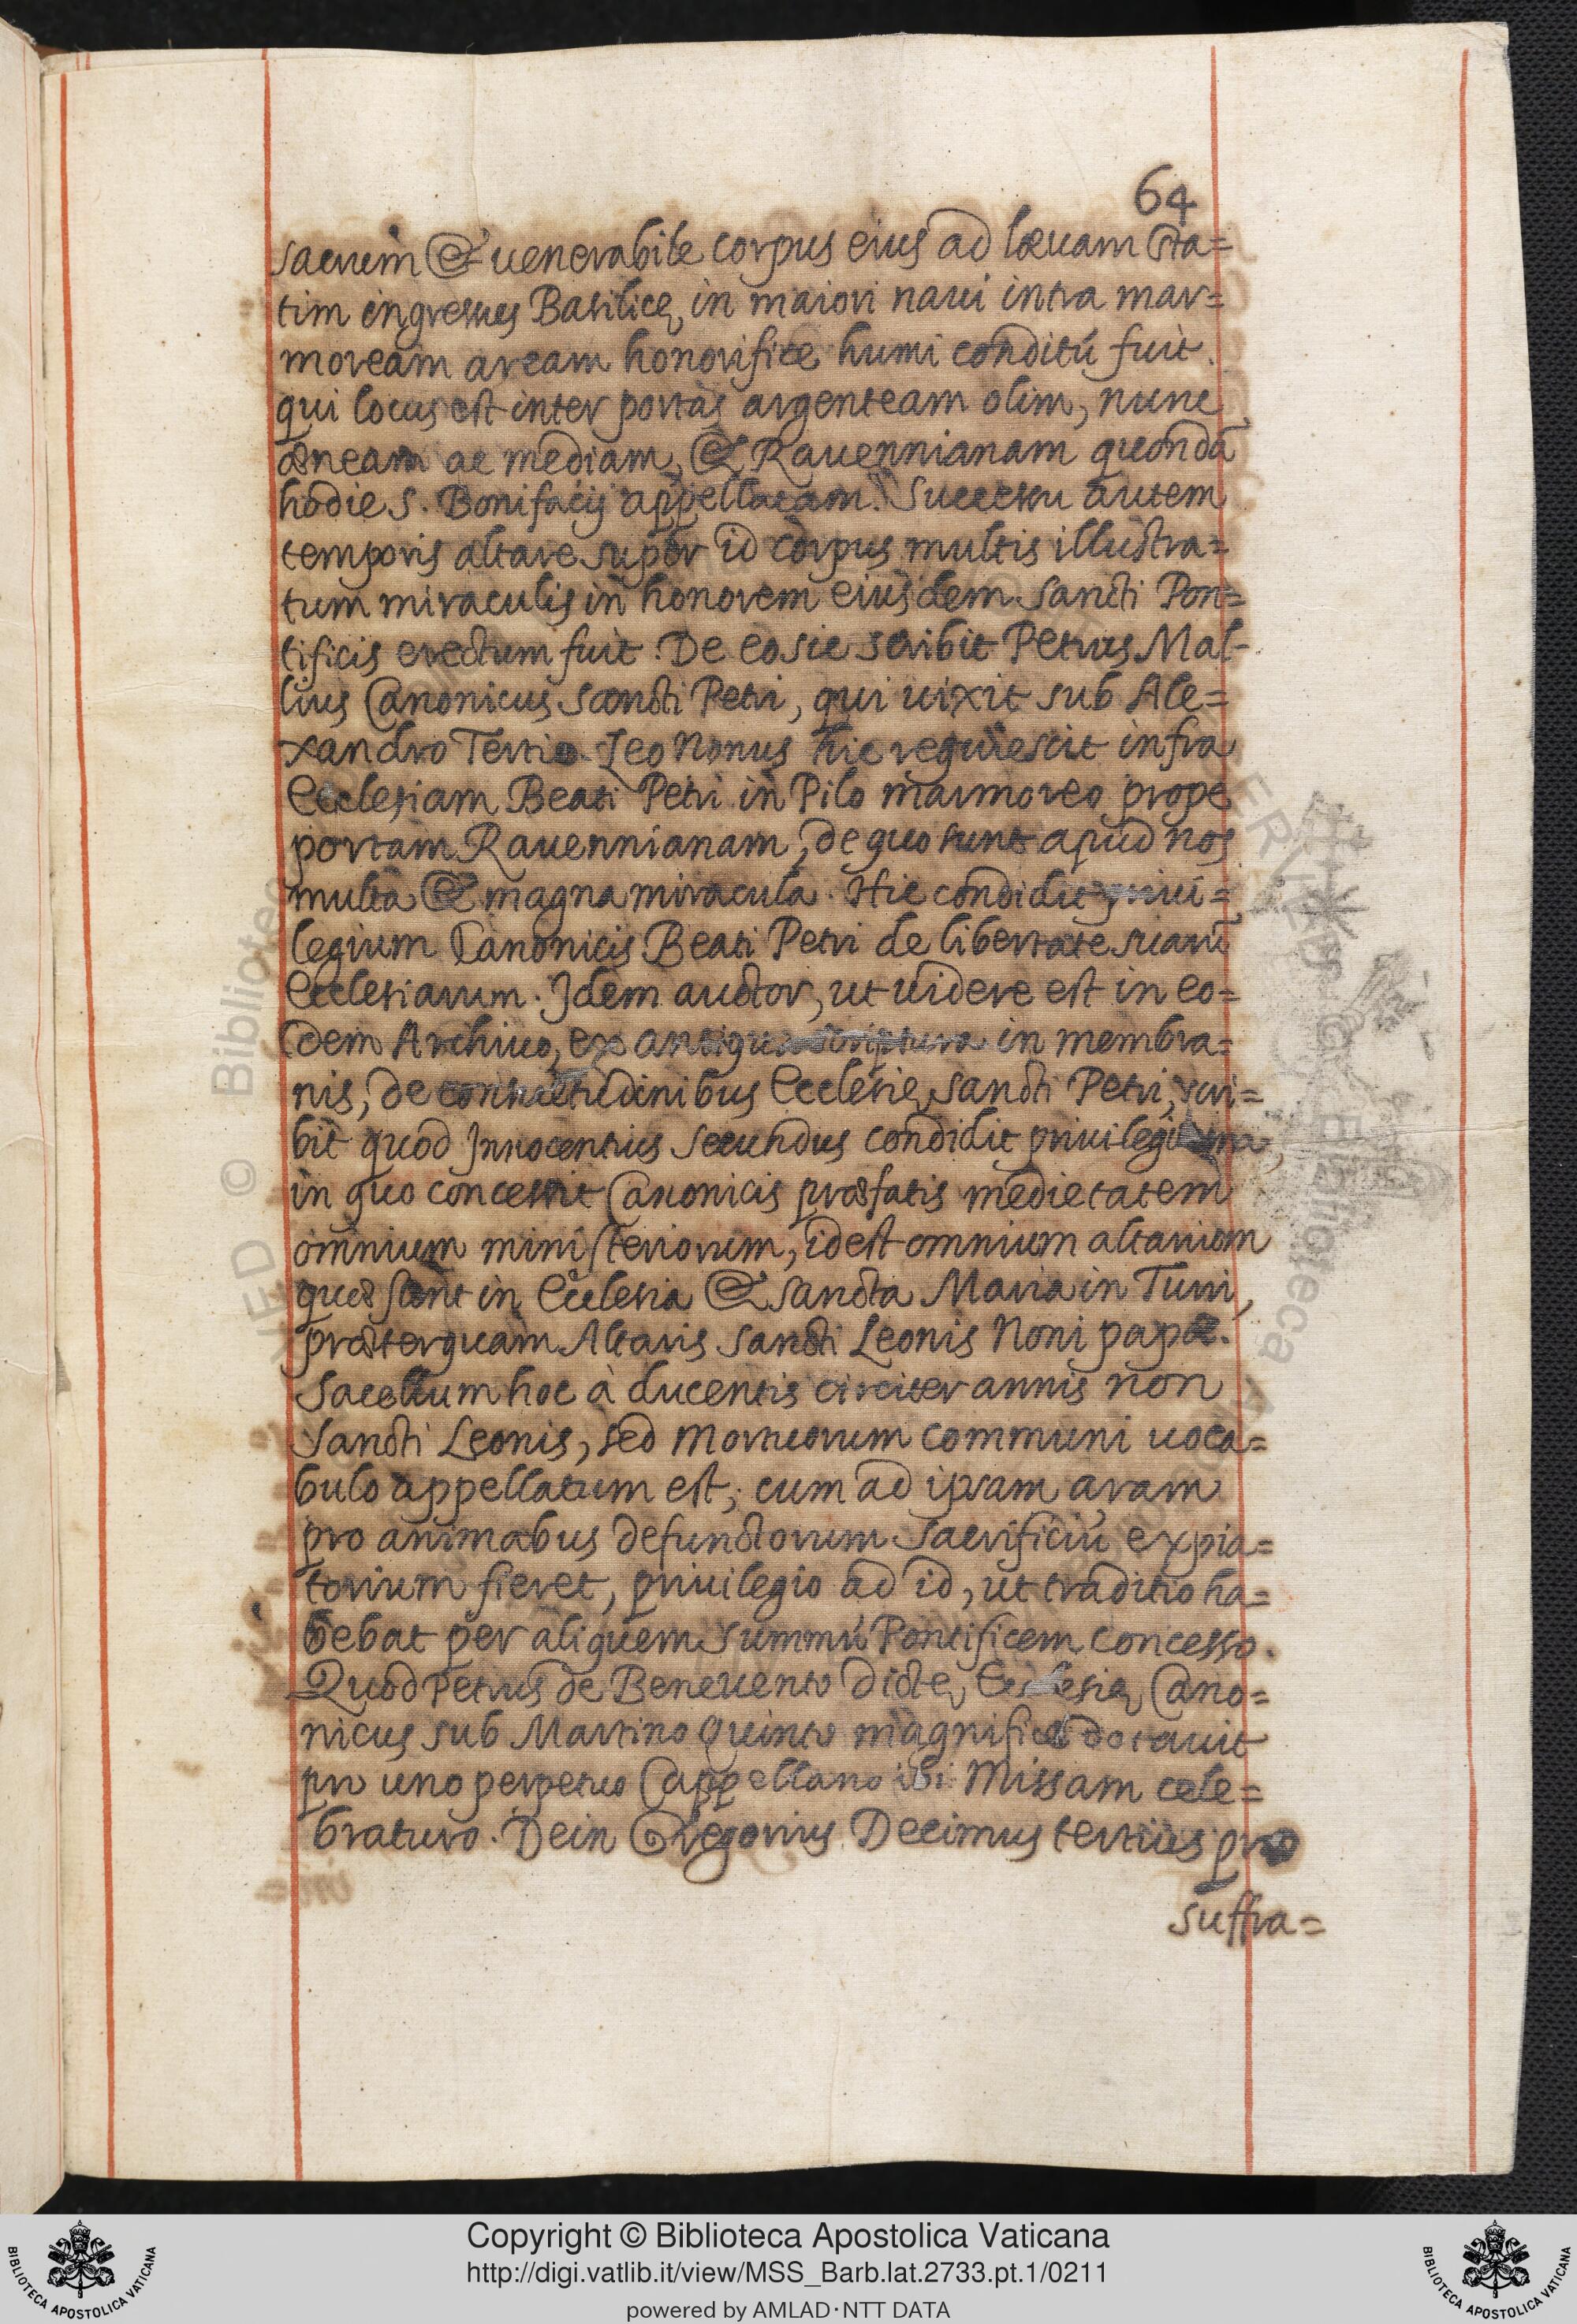 64
sacrum & uenerabile corpus eius ad læuam sta=
tim ingressus Basilicę in maiori naui intra mar=
moream arcam honorifice humi conditũ fuit.
qui locus est inter portas argenteam olim, nunc
æneam ac mediam, & Rauennianam quondã
hodie S. Bonifacij appellatam. Successu autem
temporis altare super id corpus multis illustra=
tum miraculis in honorem eiusdem Sancti Pon=
tificis erectum fuit. De eo sic scribit Petrus Mal-
lius Canonicus Sancti Petri, qui uixit sub Ale=
xandro Tertio. Leo Nonus hic requiescit infra
Ecclesiam Beati Petri in Pilo marmoreo prope
portam Rauennianam, de quo sunt apud nos
multa & magna miracula. Hic condidit priui=
legium Canonicis Beati Petri de libertate suarũ
Ecclesiarum. Idem auctor, ut uidere est in eo=
dem Archiuo, ex antiqua scriptura in membra=
nis, de consuetudinibus Ecclesię Sancti Petri, scri=
bit quod Innocentius Secundus condidit priuilegium
in quo concessit Canonicis præfatis medietatem
omnium ministeriorum, idest omnium altarium
quæ sunt in Ecclesia & Sancta Maria in Turri,
præterquam Altaris Sancti Leonis Noni papæ.
Sacellum hoc à ducentis circiter annis non
Sancti Leonis, sed Mortuorum communi uoca=
bulo appellatum est, cum ad ipsam aram
pro animabus defunctorum Sacrificiũ expia=
torium fieret, priuilegio ad id, ut traditio ha=
bebat per aliquem Summũ Pontificem concesso.
Quod Petrus de Beneuento dictę Ecclesię Cano=
nicus sub Martino Quinto magnificè dotauit
pro uno perpetuo Cappellano ibi Missam cele=
braturo. Dein Gregorius Decimus tertius pro
suffra=
Copyright © Biblioteca Apostolica Vaticana
http://digi.vatlib.it/view/MSS_Barb.lat.2733.pt.1/0211
powered by AMLAD·NTT DATA
BIBLIOTECA APOSTOLICA VATICANA
BIBLIOTECA APOSTOLICA VATICANA